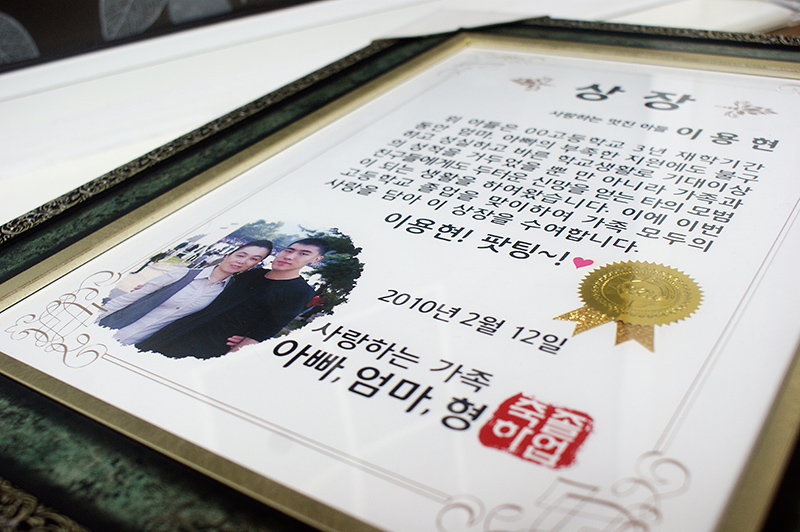 상장
사랑하는 멋진 아들 이용현
위 아들은 OO고등학교 3년 재학기간
동안 엄마, 아빠의 부족한 지원에도 불구
하고 성실하고 바른 학교생활로 기대이상
의 성적을 거두었을 뿐 만 아니라 가족과
친구들에게도 두터운 신망을 얻는 타의 모범
이 되는 생활을 하여왔습니다. 이에 이번
고등학교 졸업을 맞이하여 가족 모두의
사랑을 담아 이 상장을 수여합니다.
이용현! 팟팅~!
2010년 2월 12일
사랑하는 가족
아빠, 엄마, 형
축졸
하업